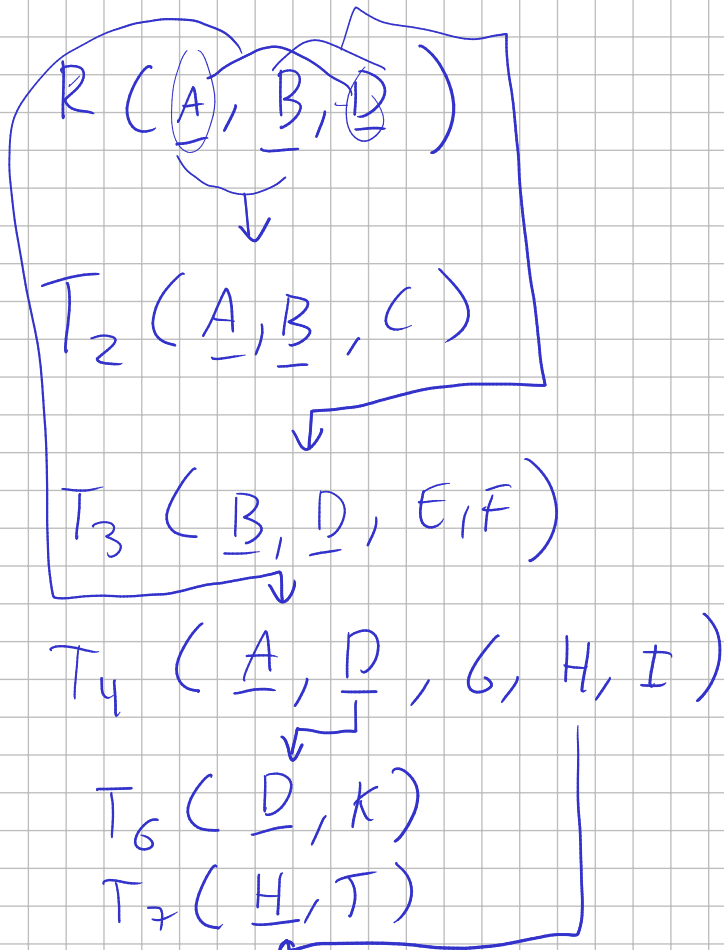 R (A, B, D)
T2 (A, B, C)
T3 (B, D, E, F)
T4 (A, D, G, H, I)
T6 (D, K)
T7 (H, J)